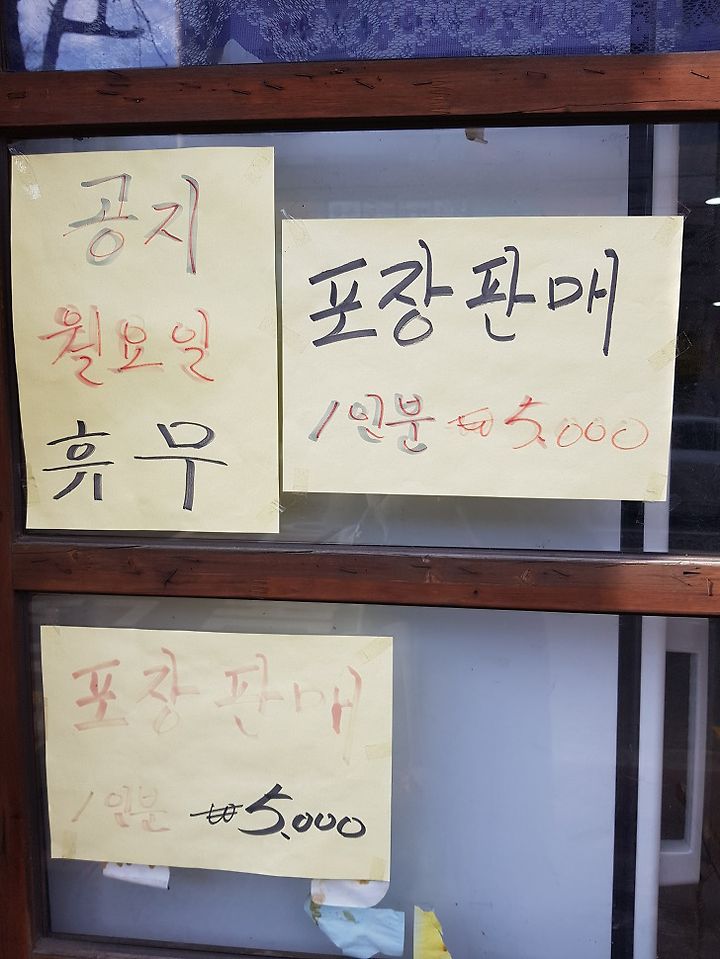 공지
월요일
휴무
포장판매
1인분 ₩5,000
포장판매
1인분 ₩5,000